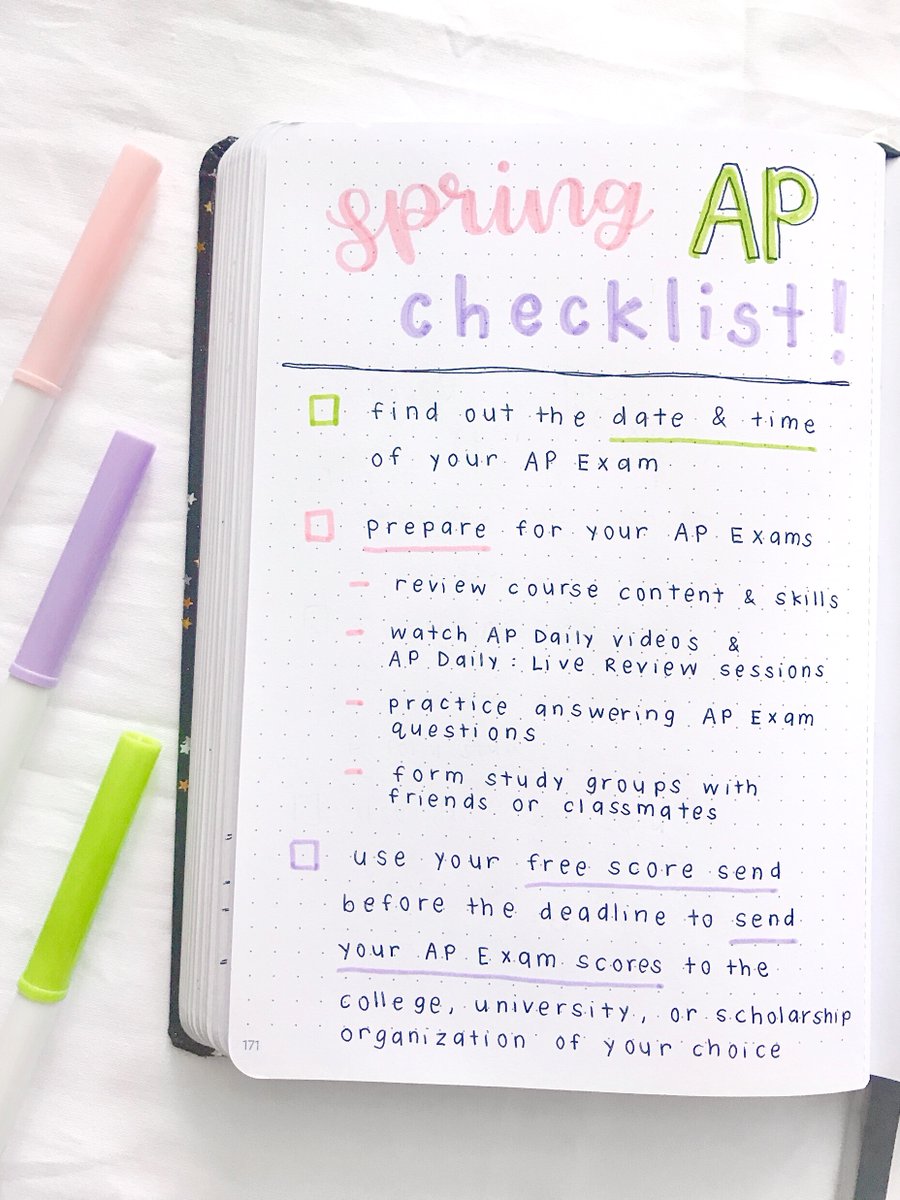 spring AP
checklist!
find out the date & time
of your AP Exam
prepare for your AP Exams
- review course content & skills
- watch AP Daily videos &
AP Daily: Live Review sessions
- practice answering AP Exam
questions
- form study groups with
friends or classmates
use your free score send
before the deadline to send
your AP Exam scores to the
college, university, or scholarship
organization of your choice
171